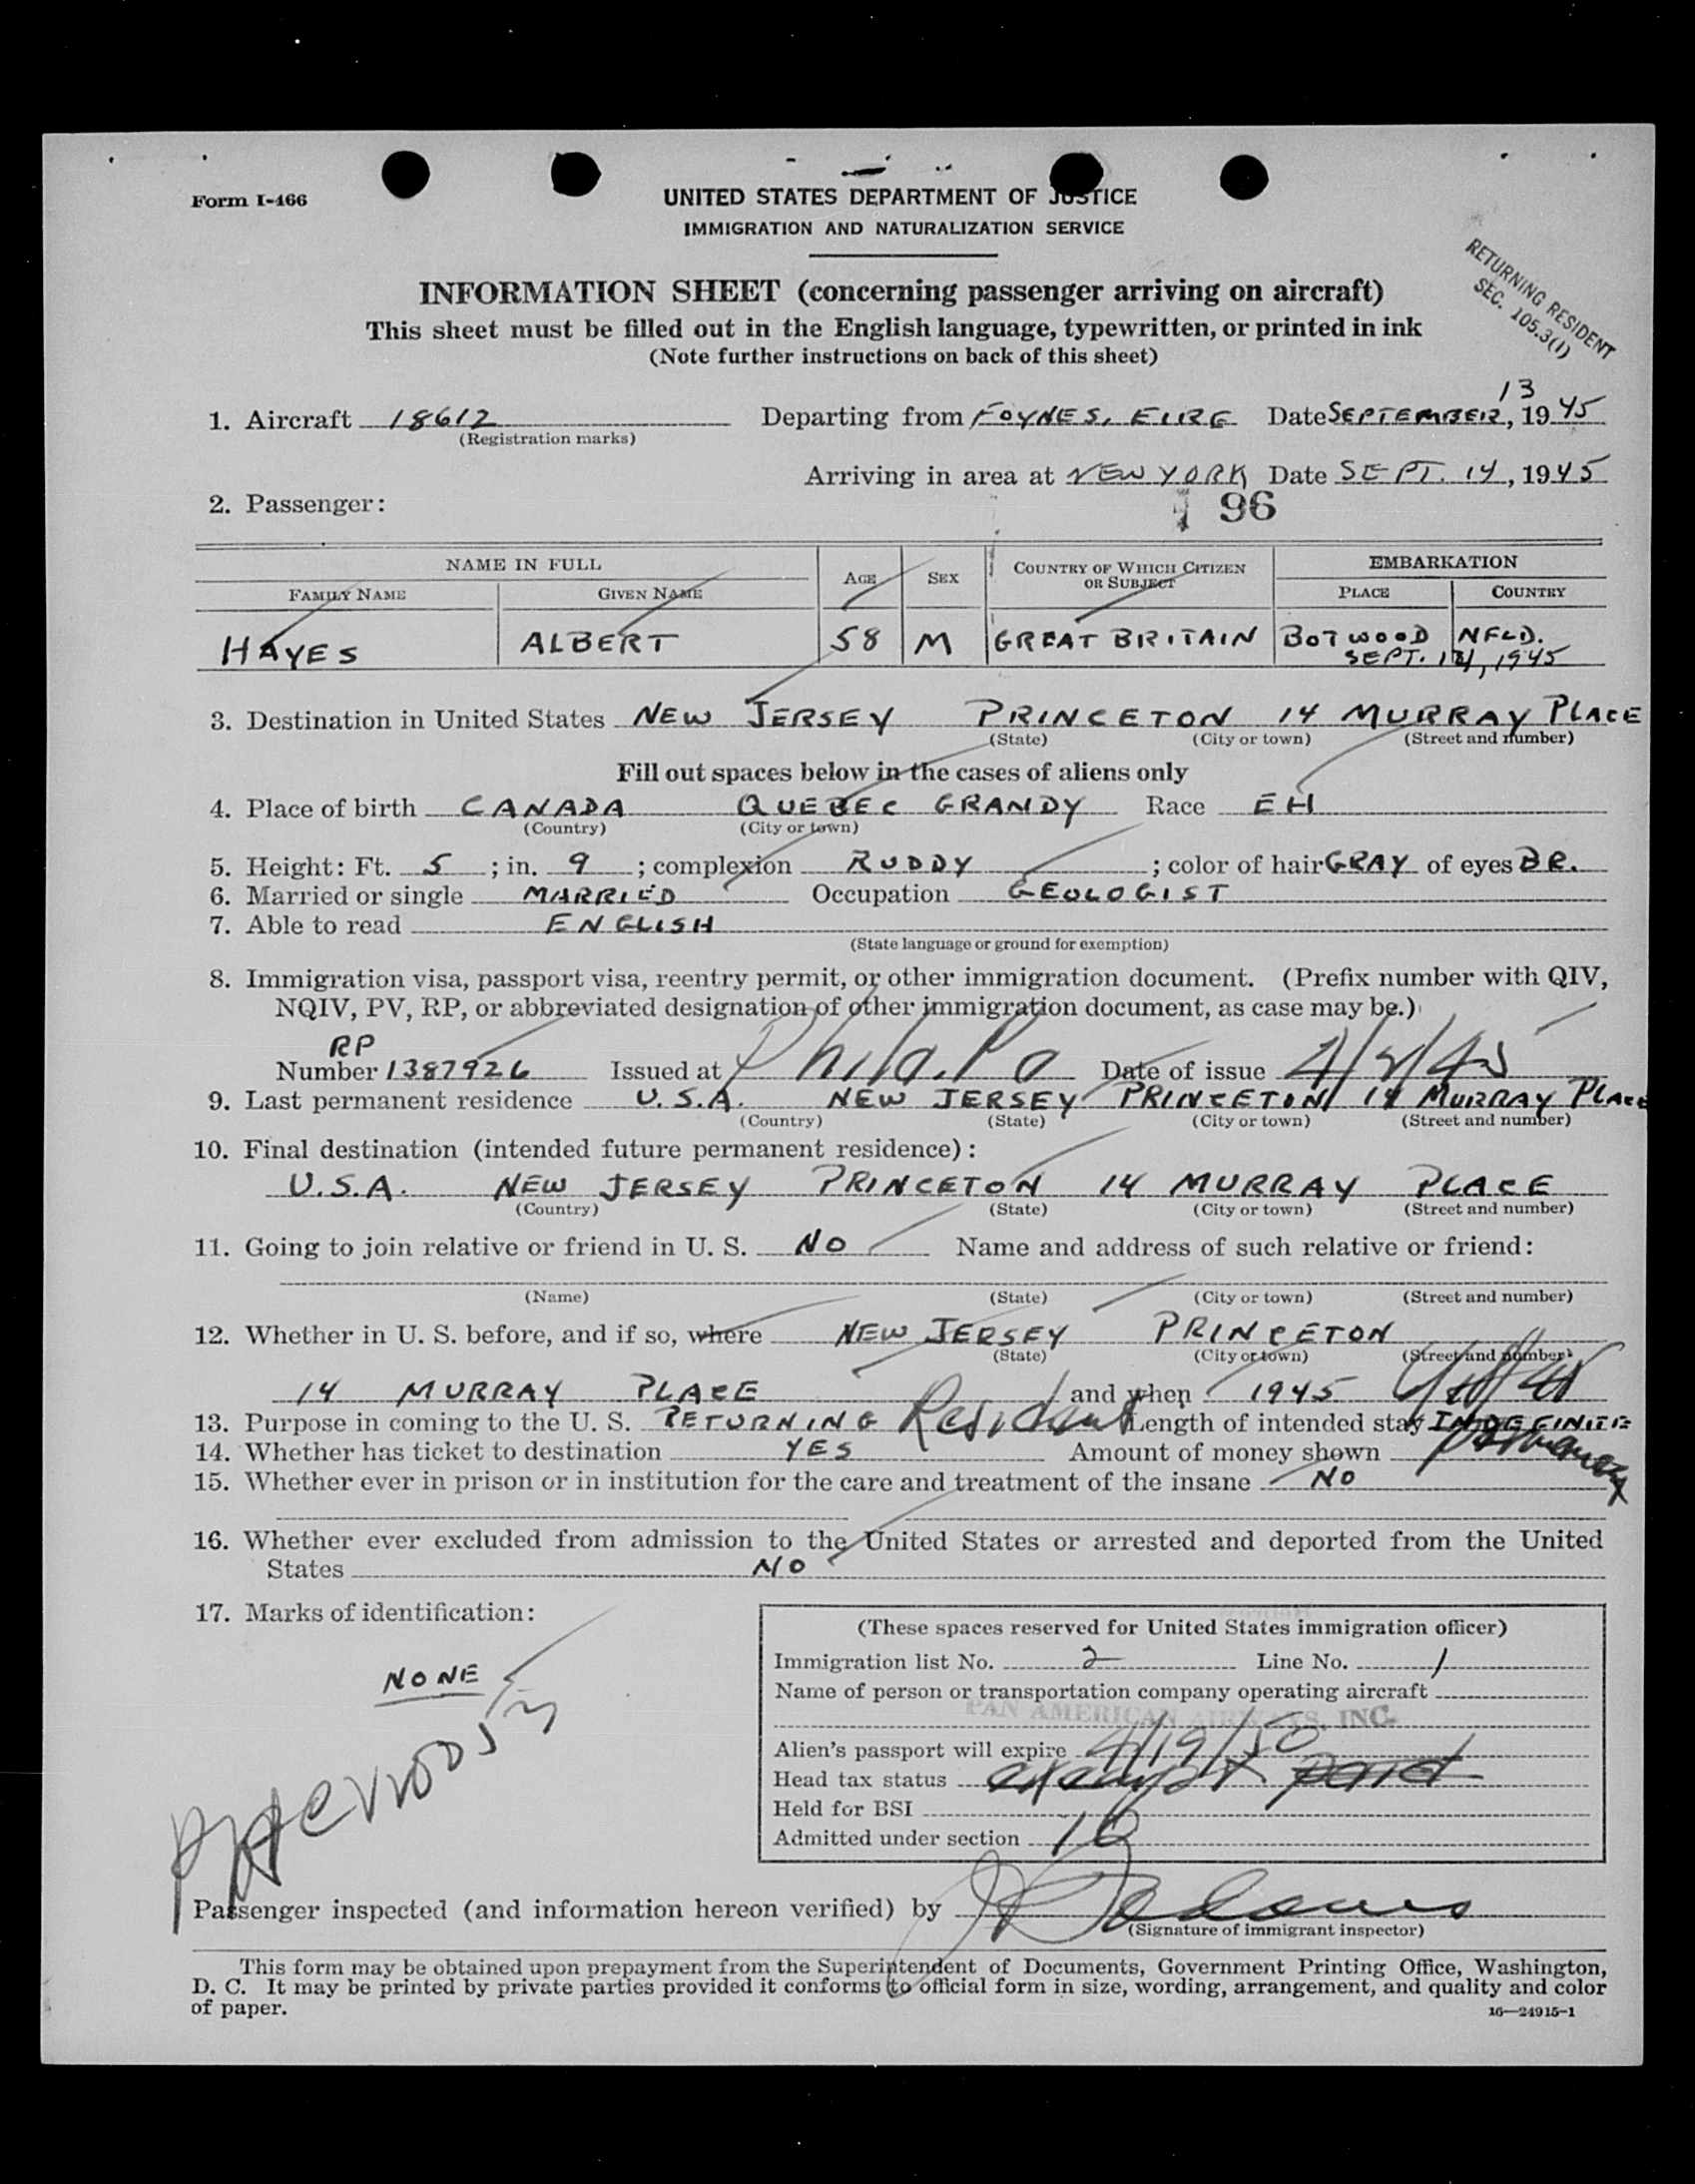 Form I-466
UNITED STATES DEPARTMENT OF JUSTICE
IMMIGRATION AND NATURALIZATION SERVICE
RETURNING RESIDENT
SEC. 105.3(1)
INFORMATION SHEET (concerning passenger arriving on aircraft)
This sheet must be filled out in the English language, typewritten, or printed in ink
(Note further instructions on back of this sheet)
1. Aircraft 18612 Departing from FOYNES, EIRE Date SEPTEMBER 13, 1945
(Registration marks)
Arriving in area at NEW YORK Date SEPT. 14, 1945
2. Passenger: 96
NAME IN FULL AGE SEX COUNTRY OF WHICH CITIZEN OR SUBJECT EMBARKATION
FAMILY NAME GIVEN NAME PLACE COUNTRY
HAYES ALBERT 58 M GREAT BRITAIN BOTWOOD NFLD.
SEPT. , 1945
3. Destination in United States NEW JERSEY PRINCETON 14 MURRAY PLACE
(State) (City or town) (Street and number)
Fill out spaces below in the cases of aliens only
4. Place of birth CANADA QUEBEC GRANDY Race EH
(Country) (City or town)
5. Height: Ft. 5; in. 9; complexion RUDDY; color of hair GRAY of eyes BR.
6. Married or single MARRIED Occupation GEOLOGIST
7. Able to read ENGLISH
(State language or ground for exemption)
8. Immigration visa, passport visa, reentry permit, or other immigration document. (Prefix number with QIV,
NQIV, PV, RP, or abbreviated designation of other immigration document, as case may be.)
RP
Number 1387926 Issued at Phila. Pa Date of issue 4/2/45
9. Last permanent residence U.S.A. NEW JERSEY PRINCETON 14 MURRAY PLACE
(Country) (State) (City or town) (Street and number)
10. Final destination (intended future permanent residence):
U.S.A. NEW JERSEY PRINCETON 14 MURRAY PLACE
(Country) (State) (City or town) (Street and number)
11. Going to join relative or friend in U. S. NO Name and address of such relative or friend:
(Name) (State) (City or town) (Street and number)
12. Whether in U. S. before, and if so, where NEW JERSEY PRINCETON
(State) (City or town) (Street and number)
14 MURRAY PLACE and when 1945
13. Purpose in coming to the U. S. RETURNING Resident Length of intended stay INDEFINITE
14. Whether has ticket to destination YES Amount of money shown
15. Whether ever in prison or in institution for the care and treatment of the insane NO
16. Whether ever excluded from admission to the United States or arrested and deported from the United
States NO
17. Marks of identification:
NONE
(These spaces reserved for United States immigration officer)
Immigration list No. 2 Line No. 1
Name of person or transportation company operating aircraft
PAN AMERICAN AIRWAYS, INC.
Alien's passport will expire 4/19/50
Head tax status exempt paid
Held for BSI
Admitted under section
Passenger inspected (and information hereon verified) by
(Signature of immigrant inspector)
This form may be obtained upon prepayment from the Superintendent of Documents, Government Printing Office, Washington,
D. C. It may be printed by private parties provided it conforms to official form in size, wording, arrangement, and quality and color
of paper.
16—24915-1